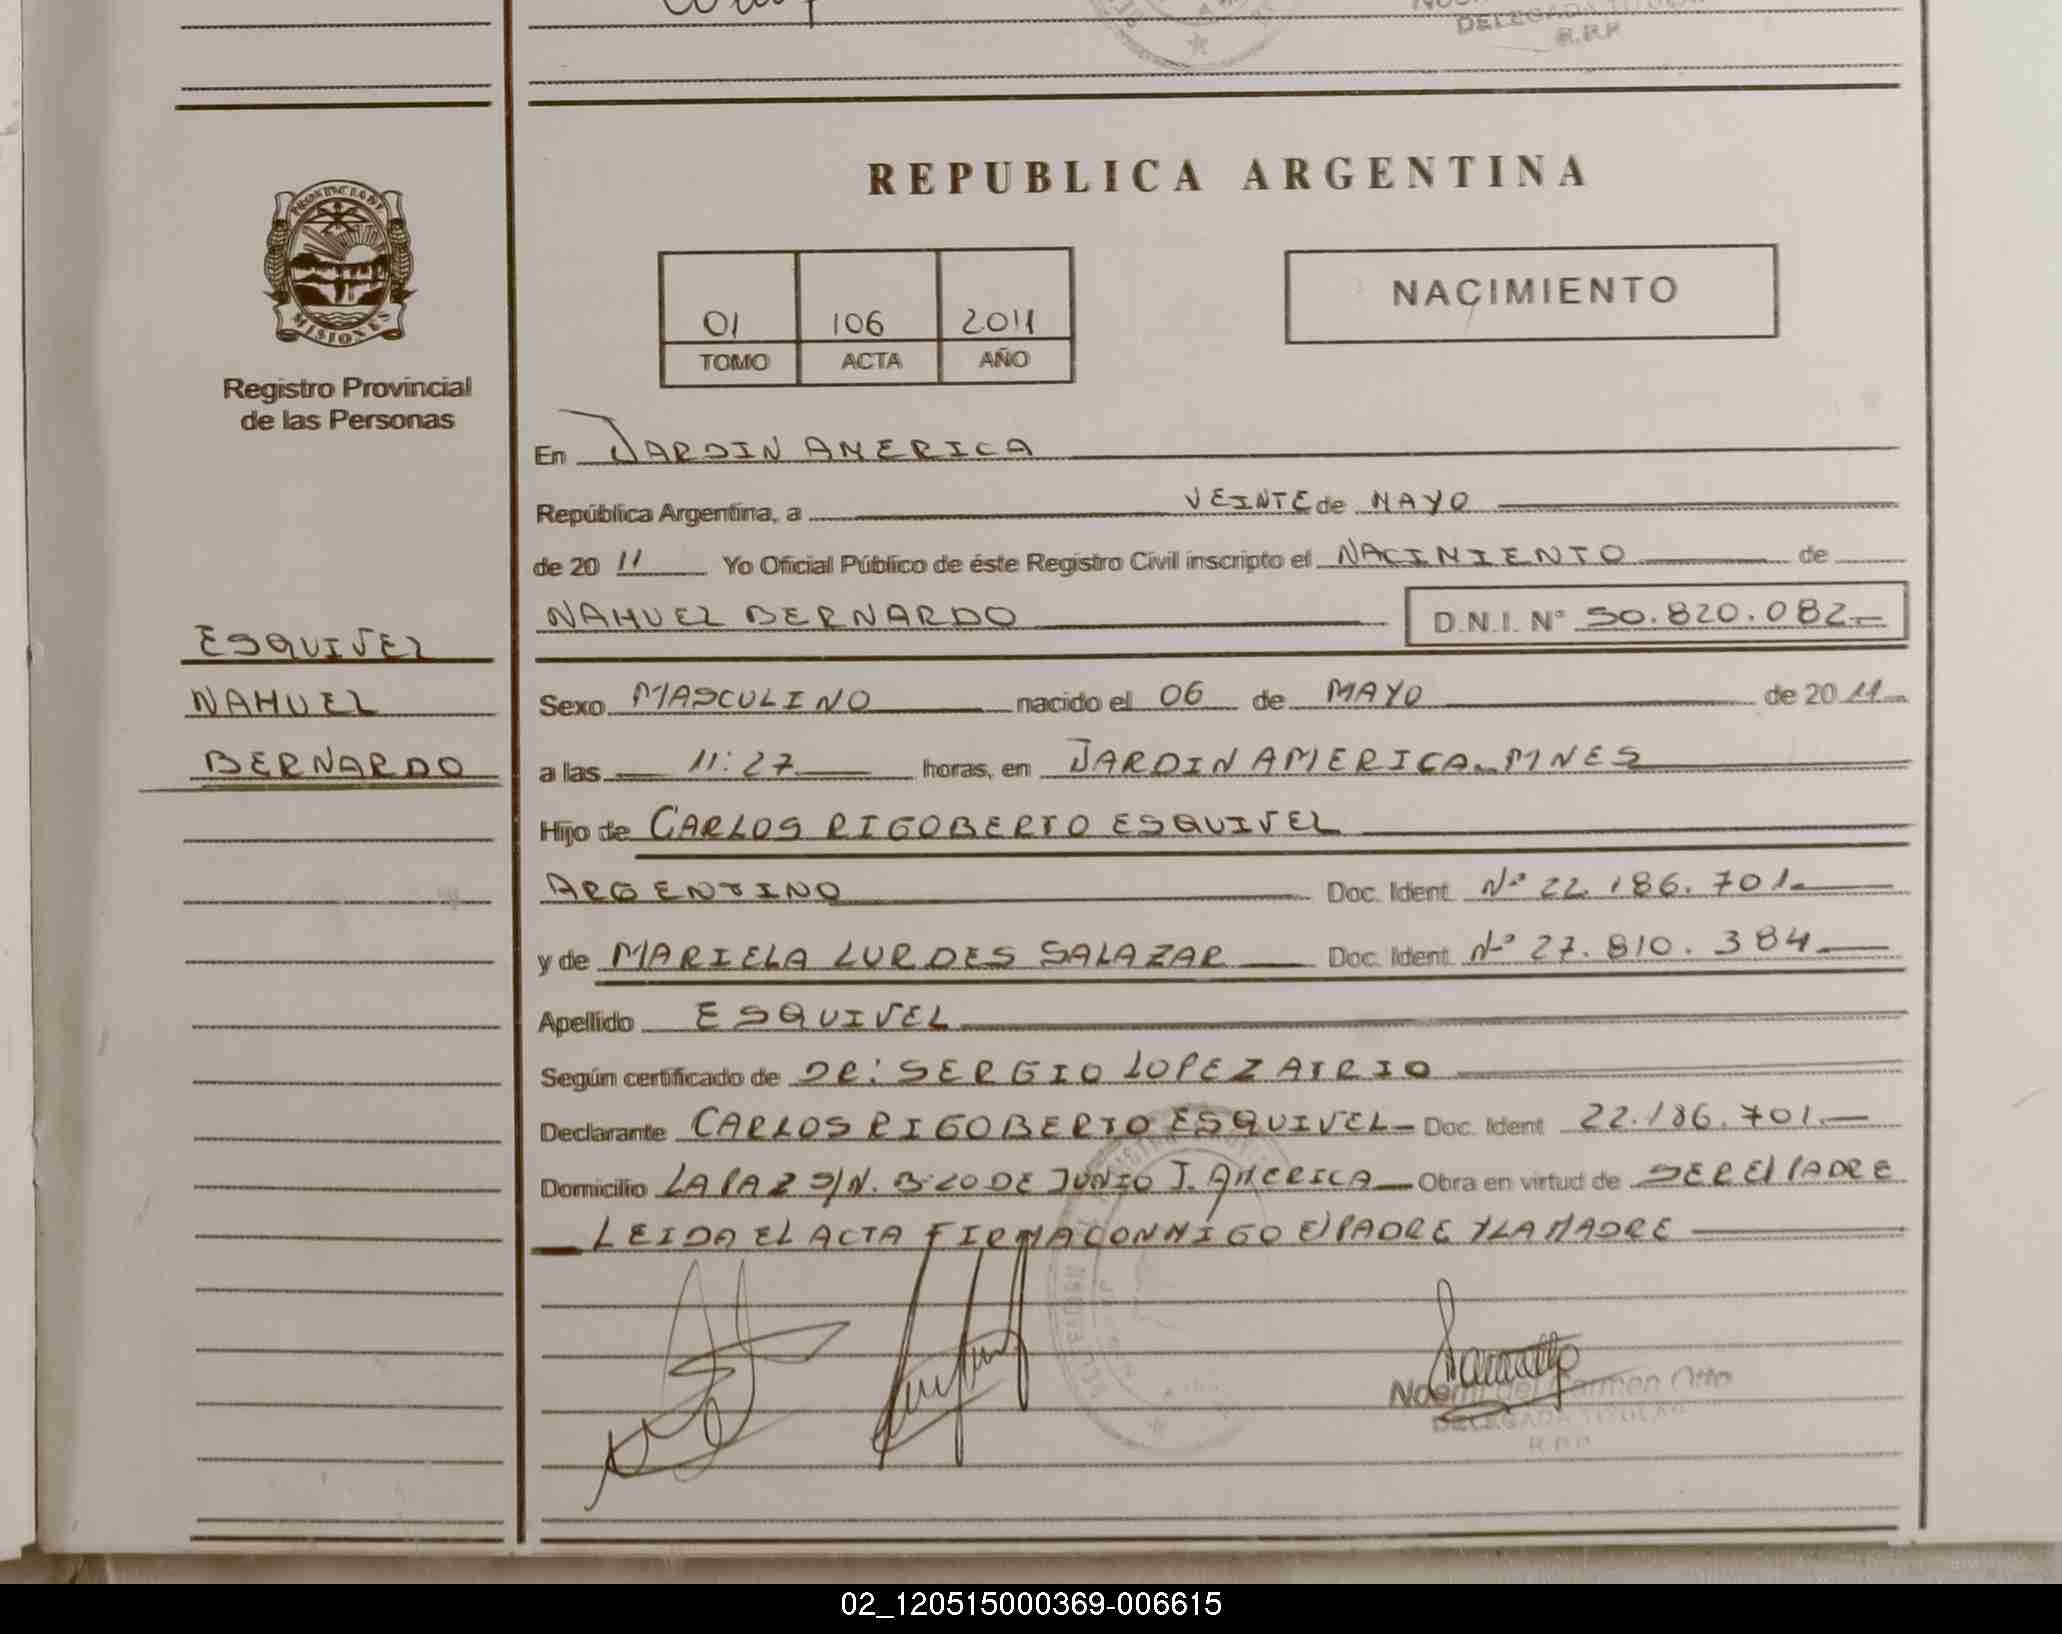 DELEGADA TITULAR
R.P.P.
PROVINCIA DE
MISIONES
Registro Provincial
de las Personas
ESQUIVEL
NAHUEL
BERNARDO
REPUBLICA ARGENTINA
01 106 2011
TOMO ACTA AÑO
NACIMIENTO
En JARDIN AMERICA
República Argentina, a VEINTE de MAYO
de 20 11 Yo Oficial Público de éste Registro Civil inscripto el NACIMIENTO de
NAHUEL BERNARDO D.N.I. Nº 50.820.082.-
Sexo MASCULINO nacido el 06 de MAYO de 20 11
a las 11:27 horas, en JARDIN AMERICA. MNES
Hijo de CARLOS RIGOBERTO ESQUIVEL
ARGENTINO Doc. Ident. Nº 22.186.701.-
y de MARIELA LURDES SALAZAR Doc. Ident. Nº 27.810.384
Apellido ESQUIVEL
Según certificado de DR: SERGIO LOPEZ
Declarante CARLOS RIGOBERTO ESQUIVEL- Doc. Ident 22.186.701.-
Domicilio LA PAZ S/N. B. 20 DE JUNIO J. AMERICA Obra en virtud de SER El PADRE
LEIDA EL ACTA FIRMA CONMIGO El PADRE Y LA MADRE
Noemi del Carmen Otto
DELEGADA TITULAR
R.P.P.
02_120515000369-006615